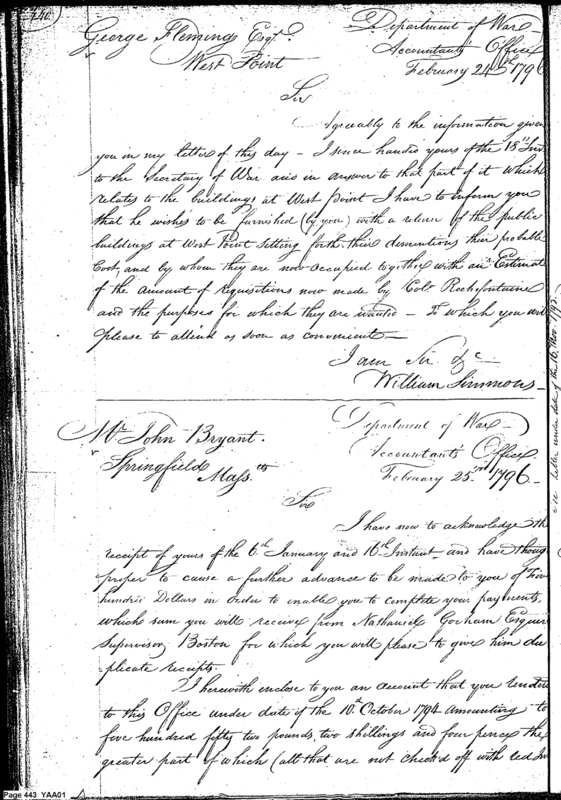 440
George Fleming Esqr.
West Point
Department of War
Accountants Office
February 24th 1796
Sir
Agreeably to the information given
you on my letter of this day - I since handed yours of the 18th Int
to the Secretary of War and in answer to that part of it which
relates to the buildings at West Point I have to inform you
that he wishes to be furnished (by you) with a return of the public
buildings at West Point setting forth their dementions their probable
Cost, and by whom they are now occupied together with an Estimate
of the amount of requisitions now made by Colo. Rochefontaine
and the purposes for which they are wanted - To which you will
please to attend as soon as convenient -
I am Sir &c
William Simmons -
Mr. John Bryant.
Springfield
Massts
Department of War
Accountants Office
February 25th 1796 -
Sir
I have now to acknowledge the
receipt of yours of the 6th January and 16th Instant and have thoug
proper to cause a further advance to be made to you of Five
hundred Dollars in order to enable you to complete your payments,
which sum you will receive from Nathaniel Gorham Esquire
Supervisor, Boston for which you will please to give him du
plicate receipts.
I herewith enclose to you an account that you rendere
to this Office under date of the 10th October 1794 amounting to
five hundred fifty two pounds, two shillings and four pence the
greater part of which (all that are not checked off with red In
see letter under date of the 6. Nov. 1795.
Page 443 YAA01